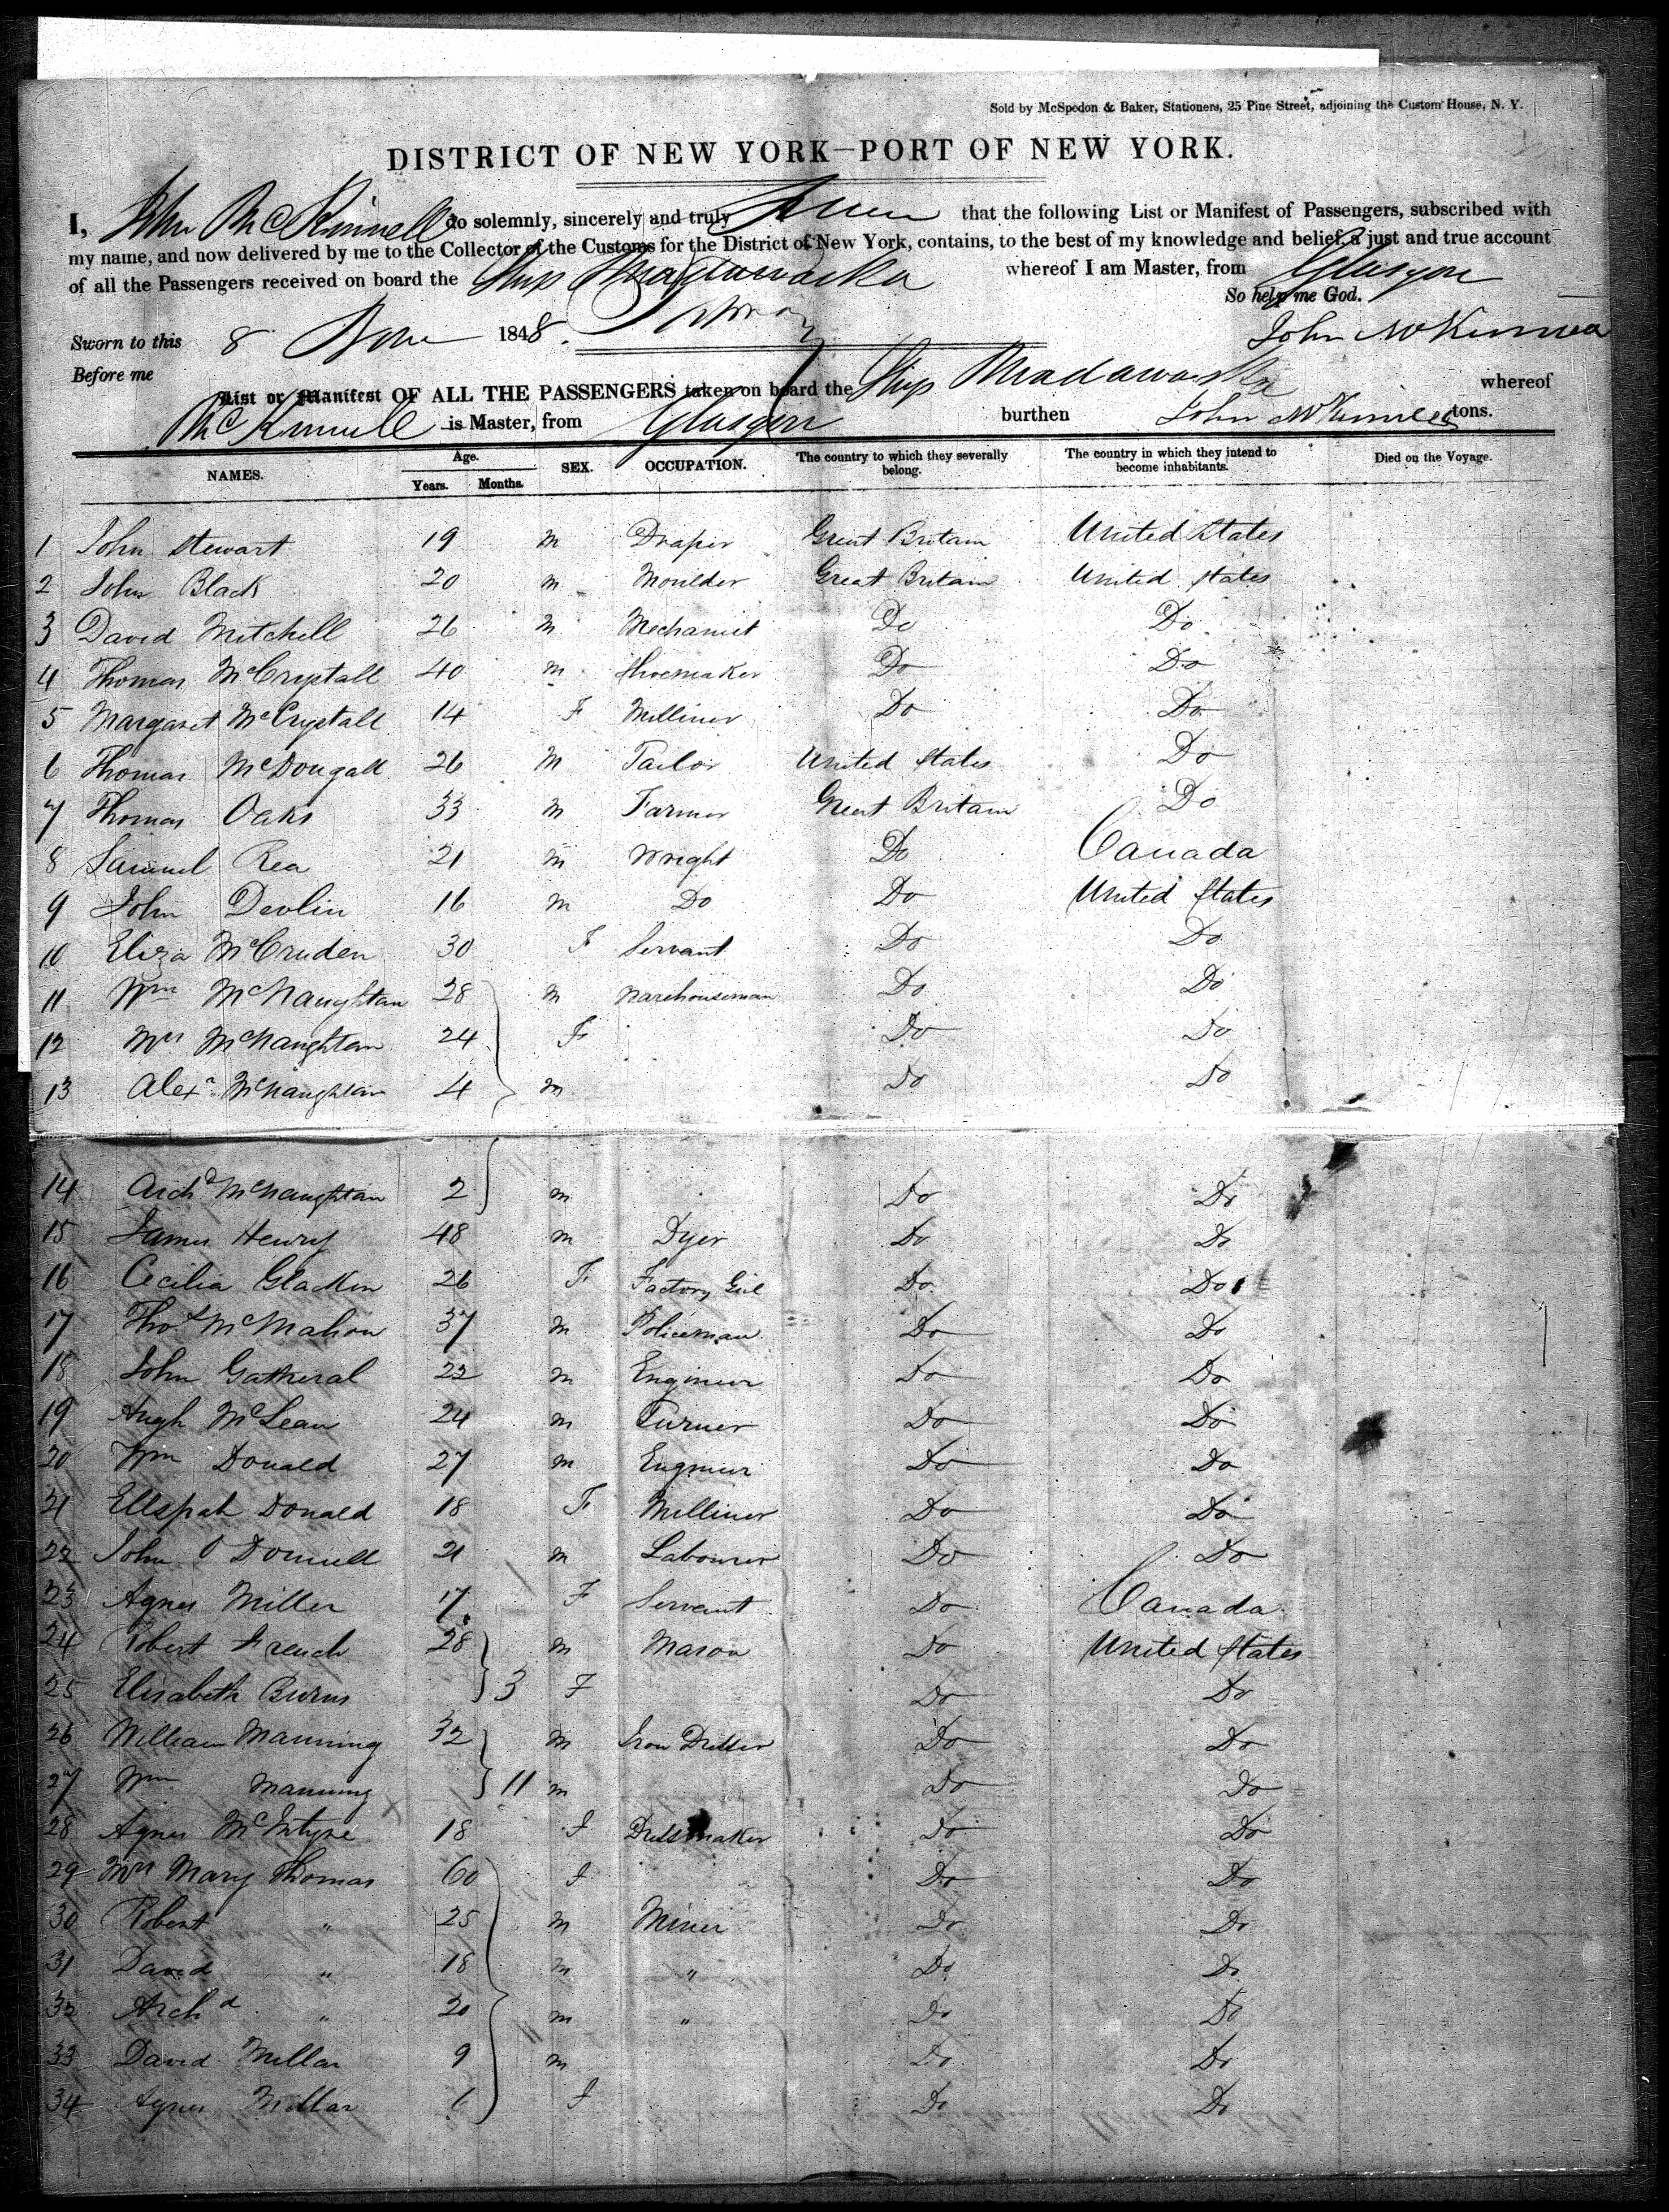 Sold by McSpedon & Baker, Stationers, 25 Pine Street, adjoining the Custom House, N. Y.
DISTRICT OF NEW YORK—PORT OF NEW YORK.
I, John McKinnell do solemnly, sincerely and truly Swear that the following List or Manifest of Passengers, subscribed with
my name, and now delivered by me to the Collector of the Customs for the District of New York, contains, to the best of my knowledge and belief, a just and true account
of all the Passengers received on board the Ship Madawaska whereof I am Master, from Glasgow
So help me God.
Sworn to this 8 Nov 1848.
John McKinnell
Before me
List or Manifest OF ALL THE PASSENGERS taken on board the Ship Madawaska whereof
McKinnell is Master, from Glasgow burthen John McKinnell tons.
NAMES. Age. Years. Months. SEX. OCCUPATION. The country to which they severally belong. The country in which they intend to become inhabitants. Died on the Voyage.
1 John Stewart 19 M Draper Great Britain United States
2 John Black 20 m Moulder Great Britain United States
3 David Mitchell 26 M Mechanist Do Do
4 Thomas McCrystall 40 M Shoemaker Do Do
5 Margaret McCrystall 14 F Milliner Do Do
6 Thomas McDougall 26 M Tailor United States Do
7 Thomas Oaks 33 M Farmer Great Britain Do
8 Samuel Rea 21 M Wright Do Canada
9 John Devlin 16 M Do Do United States
10 Eliza McCruden 30 F Servant Do Do
11 Wm McNaughtan 28 M Warehouseman Do Do
12 Mrs McNaughtan 24 F Do Do
13 Alexr McNaughtan 4 M Do Do
14 Archd McNaughtan 2 M Do Do
15 James Henry 48 M Dyer Do Do
16 Cecilia Glacken 26 F Factory Girl Do Do
17 Thos McMahon 37 M Policeman Do Do
18 John Gatheral 22 M Engineer Do Do
19 Hugh McLean 24 M Turner Do Do
20 Wm Donald 27 M Engineer Do Do
21 Ellspah Donald 18 F Milliner Do Do
22 John O'Donnell 21 M Labourer Do Do
23 Agnes Miller 17 F Servant Do Canada
24 Robert French 28 M Mason Do United States
25 Elisabeth Burns 3 F Do Do
26 William Manning 32 M Iron Driller Do Do
27 Wm Manning 11 M Do Do
28 Agnes McIntyre 18 F Dressmaker Do Do
29 Mrs Mary Thomas 60 F Do Do
30 Robert " 25 M Miner Do Do
31 David " 18 M " Do Do
32 Archd " 20 M " Do Do
33 David Millar 9 M Do Do
34 Agnes Millar 6 F Do Do